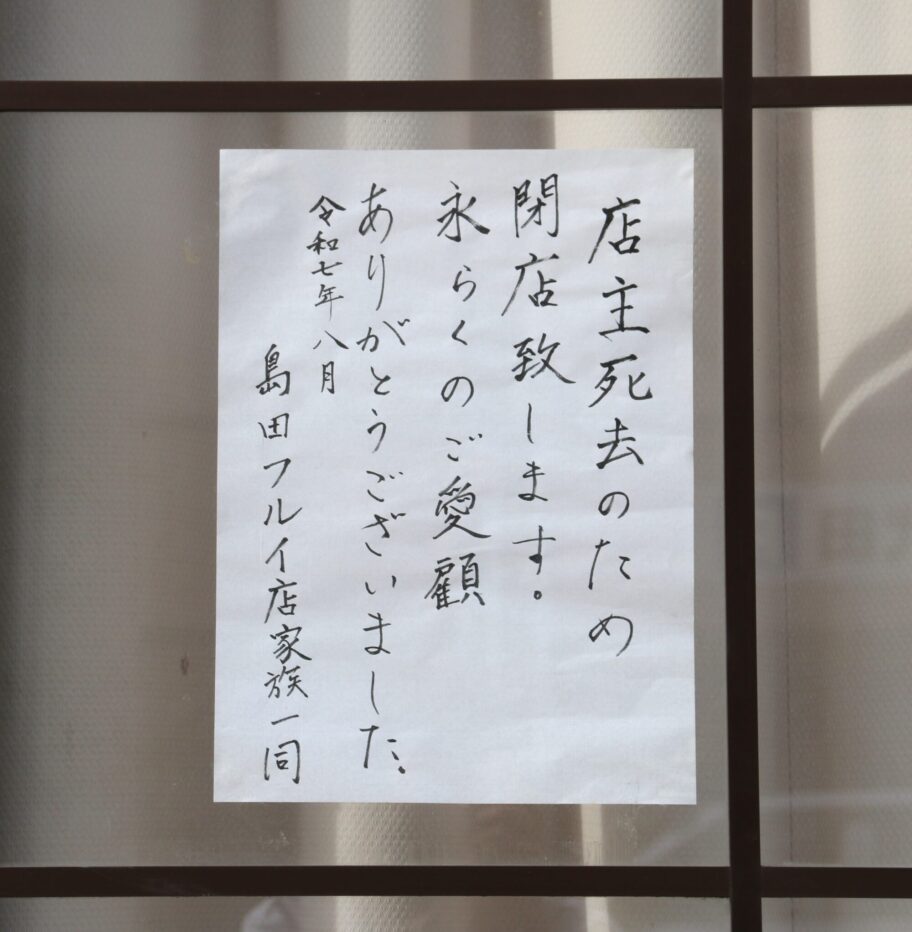 店主死去のため
閉店致します。
永らくのご愛顧
ありがとうございました。
令和七年八月
島田フルイ店家族一同